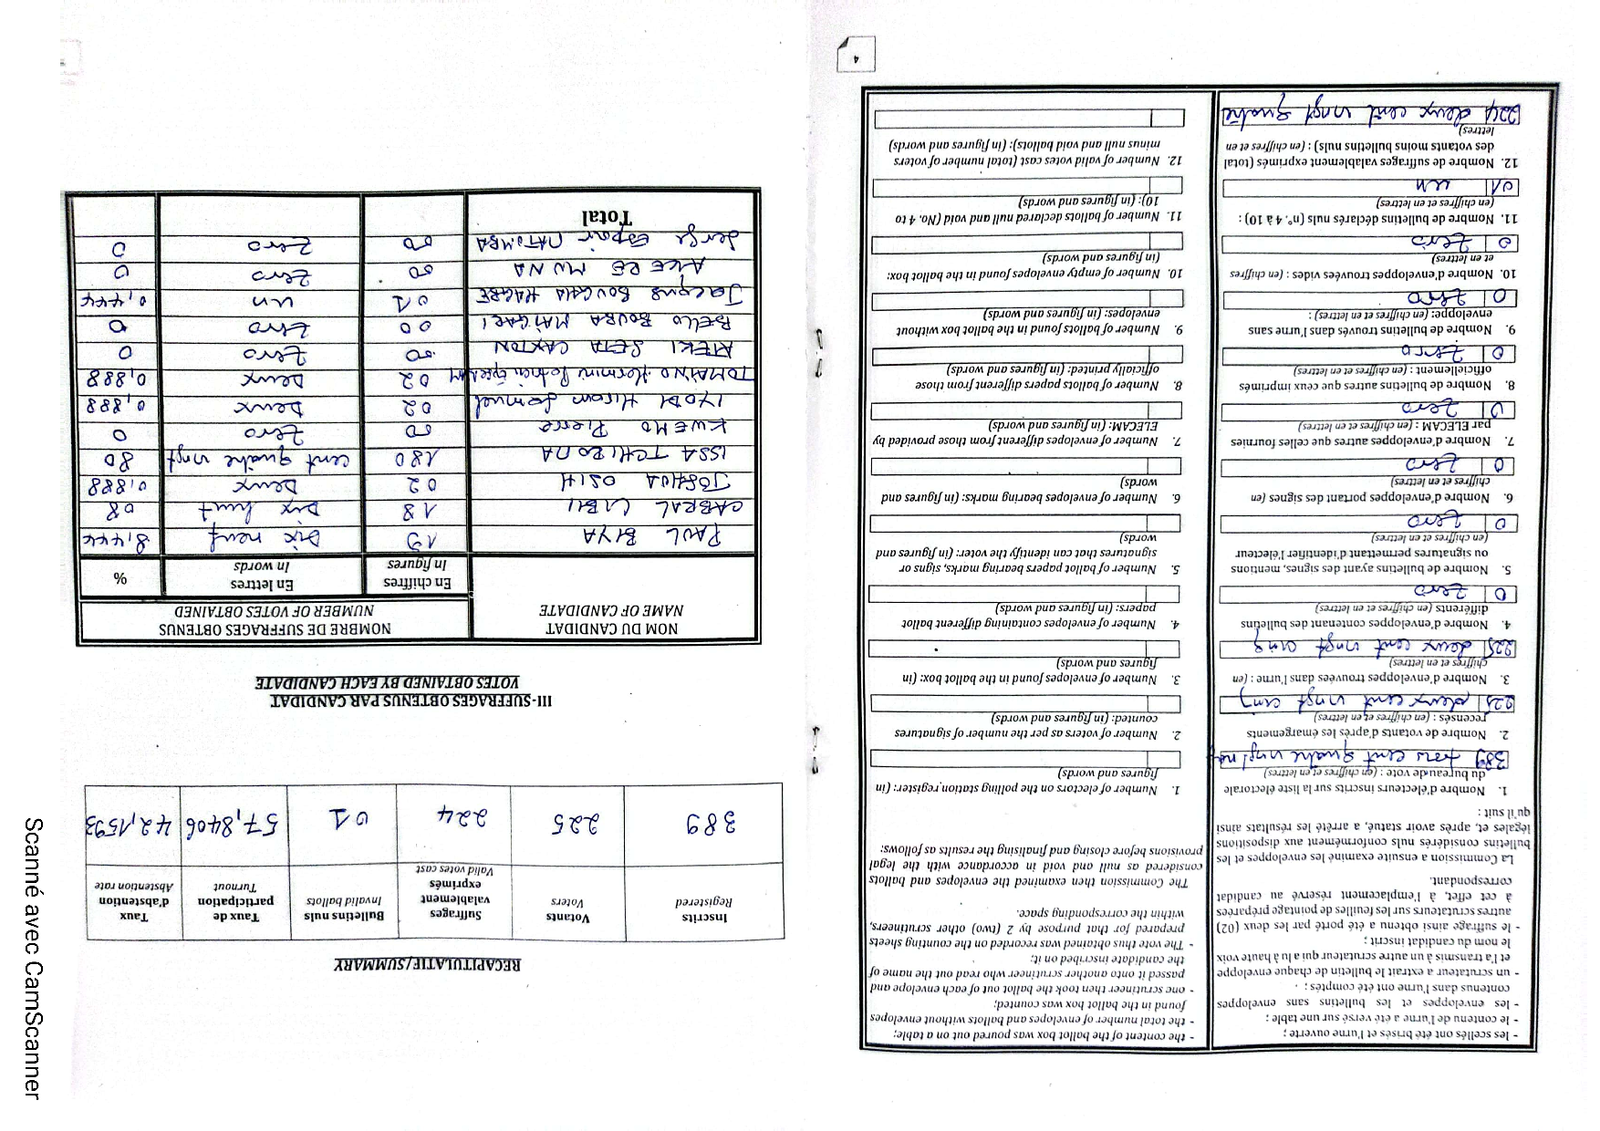 - les scellés ont été brisés et l'urne ouverte ;
- le contenu de l'urne a été versé sur une table ;
- les enveloppes et les bulletins sans enveloppes contenus dans l'urne ont été comptés ;
- un scrutateur a extrait le bulletin de chaque enveloppe et l'a transmis à un autre scrutateur qui a lu à haute voix le nom du candidat inscrit ;
- le suffrage ainsi obtenu a été porté par les deux (02) autres scrutateurs sur les feuilles de pointage préparées à cet effet, à l'emplacement réservé au candidat correspondant.
La Commission a ensuite examiné les enveloppes et les bulletins considérés nuls conformément aux dispositions légales et, après avoir statué, a arrêté les résultats ainsi qu'il suit :
1. Nombre d'électeurs inscrits sur la liste électorale du bureau de vote : (en chiffres et en lettres)
389 trois cent quatre vingt neuf
2. Nombre de votants d'après les émargements recensés : (en chiffres et en lettres)
225 deux cent vingt cinq
3. Nombre d'enveloppes trouvées dans l'urne : (en chiffres et en lettres)
225 deux cent vingt cinq
4. Nombre d'enveloppes contenant des bulletins différents (en chiffres et en lettres)
0 Zero
5. Nombre de bulletins ayant des signes, mentions ou signatures permettant d'identifier l'électeur (en chiffres et en lettres)
0 Zero
6. Nombre d'enveloppes portant des signes (en chiffres et en lettres)
0 Zero
7. Nombre d'enveloppes autres que celles fournies par ELECAM : (en chiffres et en lettres)
0 Zero
8. Nombre de bulletins autres que ceux imprimés officiellement : (en chiffres et en lettres)
0 Zero
9. Nombre de bulletins trouvés dans l'urne sans enveloppe: (en chiffres et en lettres) :
0 Zero
10. Nombre d'enveloppes trouvées vides : (en chiffres et en lettres)
0 Zero
11. Nombre de bulletins déclarés nuls (n°. 4 à 10) : (en chiffres et en lettres)
01 un
12. Nombre de suffrages valablement exprimés (total des votants moins bulletins nuls) : (en chiffres et en lettres)
224 deux cent vingt quatre
- the content of the ballot box was poured out on a table;
- the total number of envelopes and ballots without envelopes found in the ballot box was counted;
- one scrutineer then took the ballot out of each envelope and passed it onto another scrutineer who read out the name of the candidate inscribed on it;
- The vote thus obtained was recorded on the counting sheets prepared for that purpose by 2 (two) other scrutineers, within the corresponding space.
The Commission then examined the envelopes and ballots considered as null and void in accordance with the legal provisions before closing and finalising the results as follows:
1. Number of electors on the polling station register: (in figures and words)
2. Number of voters as per the number of signatures counted: (in figures and words)
3. Number of envelopes found in the ballot box: (in figures and words)
4. Number of envelopes containing different ballot papers: (in figures and words)
5. Number of ballot papers bearing marks, signs or signatures that can identify the voter: (in figures and words)
6. Number of envelopes bearing marks: (in figures and words)
7. Number of envelopes different from those provided by ELECAM: (in figures and words)
8. Number of ballots papers different from those officially printed: (in figures and words)
9. Number of ballots found in the ballot box without envelopes: (in figures and words)
10. Number of empty envelopes found in the ballot box: (in figures and words)
11. Number of ballots declared null and void (No. 4 to 10): (in figures and words)
12. Number of valid votes cast (total number of voters minus null and void ballots): (in figures and words)
4
RECAPITULATIF/SUMMARY
Inscrits Registered | Votants Voters | Suffrages valablement exprimés Valid votes cast | Bulletins nuls Invalid ballots | Taux de participation Turnout | Taux d'abstention Abstention rate
389 | 225 | 224 | 01 | 57,8406 | 42,1593
III- SUFFRAGES OBTENUS PAR CANDIDAT
VOTES OBTAINED BY EACH CANDIDATE
NOM DU CANDIDAT NAME OF CANDIDATE | NOMBRE DE SUFFRAGES OBTENUS NUMBER OF VOTES OBTAINED
En chiffres In figures | En lettres In words | %
PAUL BIYA | 19 | Dix neuf | 8,444
CABRAL LIBII | 18 | Dix huit | 08
JOSHUA OSIH | 02 | Deux | 0,888
ISSA TCHIROMA | 180 | cent quatre vingt | 80
KWEMO Pierre | 00 | Zero | 0
IYODI Hiram Samuel | 02 | Deux | 0,888
TOMAÏNO Hermine Patricia | 02 | Deux | 0,888
ATEKI SETA CAXTON | 00 | Zero | 0
BELLO BOUBA MAÏGARI | 00 | Zero | 0
Jacques BOUGHA HAGBE | 01 | un | 0,444
AKERE MUNA | 00 | Zero | 0
Serge Espoir MATOMBA | 00 | Zero | 0
Total
Scanné avec CamScanner